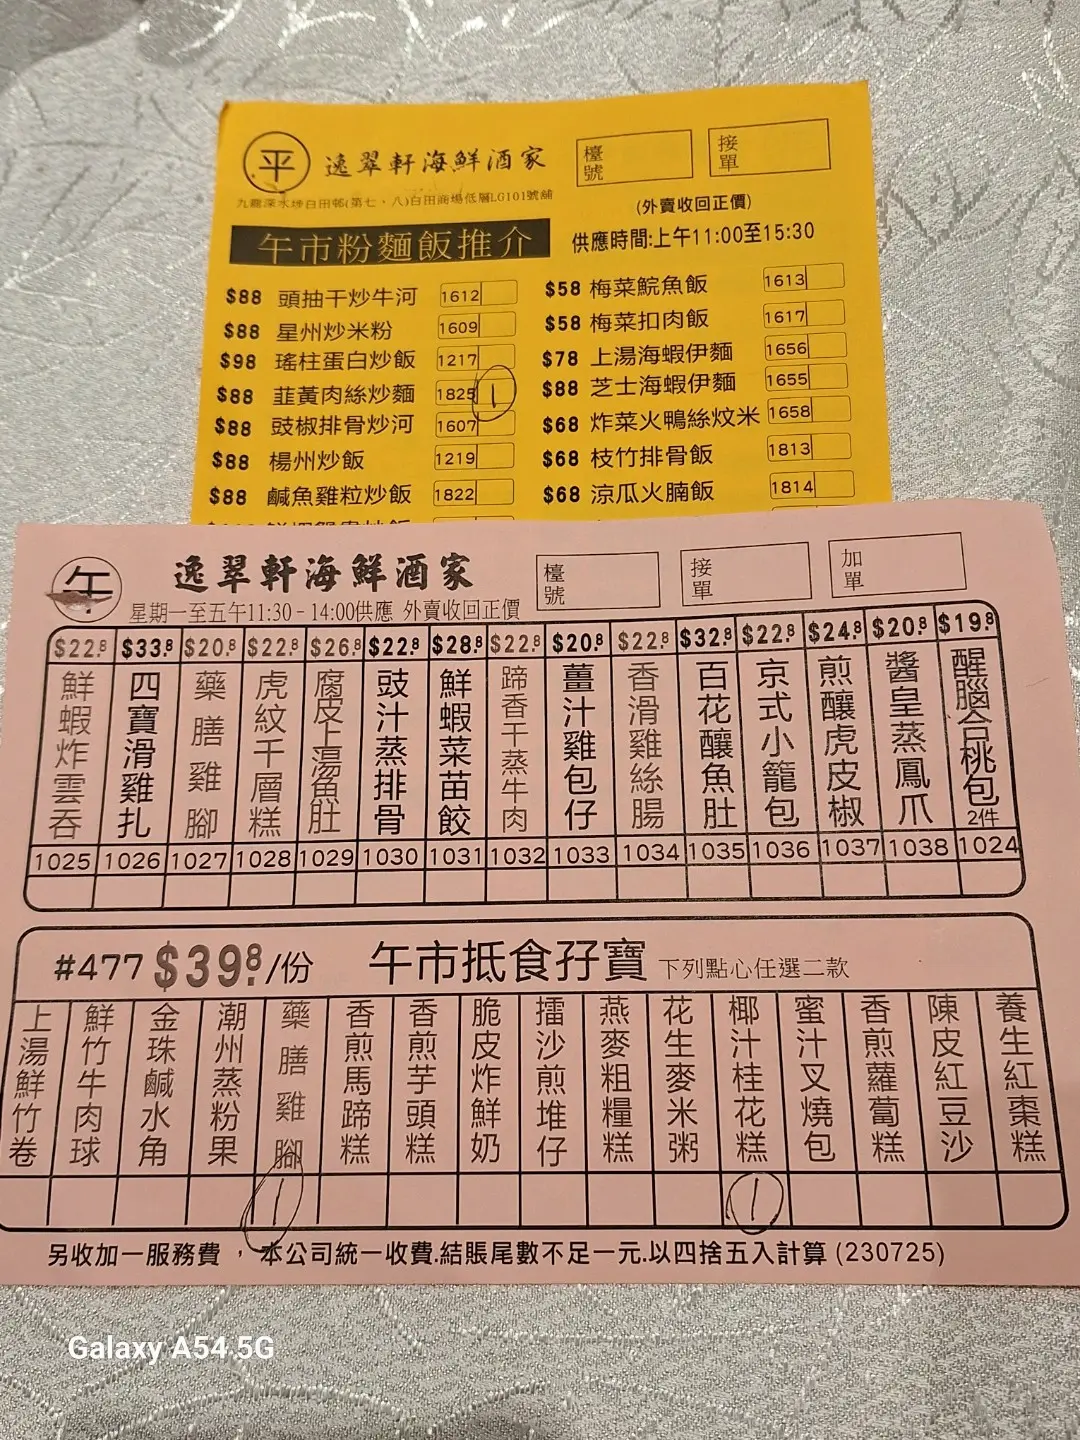 平 逸翠軒海鮮酒家 檯號 接單
九龍深水埗白田邨(第七、八)白田商場低層LG101號舖
(外賣收回正價)
午市粉麵飯推介 供應時間:上午11:00至15:30
$88 頭抽干炒牛河 1612
$58 梅菜鯇魚飯 1613
$88 星州炒米粉 1609
$58 梅菜扣肉飯 1617
$98 瑤柱蛋白炒飯 1217
$78 上湯海蝦伊麵 1656
$88 韮黃肉絲炒麵 1825 1
$88 芝士海蝦伊麵 1655
$88 豉椒排骨炒河 1607
$68 炸菜火鴨絲炆米 1658
$88 楊州炒飯 1219
$68 枝竹排骨飯 1813
$88 鹹魚雞粒炒飯 1822
$68 涼瓜火腩飯 1814
午 逸翠軒海鮮酒家 檯號 接單 加單
星期一至五午11:30-14:00供應 外賣收回正價
$22.8 $33.8 $20.8 $22.8 $26.8 $22.8 $28.8 $22.8 $20.8 $22.8 $32.8 $22.8 $24.8 $20.8 $19.8
鮮蝦炸雲吞
四寶滑雞扎
藥膳雞腳
虎紋千層糕
腐皮上湯魚肚
豉汁蒸排骨
鮮蝦菜苗餃
蹄香干蒸牛肉
薑汁雞包仔
香滑雞絲腸
百花釀魚肚
京式小籠包
煎釀虎皮椒
醬皇蒸鳳爪
醒腦合桃包 2件
1025 1026 1027 1028 1029 1030 1031 1032 1033 1034 1035 1036 1037 1038 1024
#477 $39.8/份 午市抵食孖寶 下列點心任選二款
上湯鮮竹卷
鮮竹牛肉球
金珠鹹水角
潮州蒸粉果
藥膳雞腳
香煎馬蹄糕
香煎芋頭糕
脆皮炸鮮奶
擂沙煎堆仔
燕麥粗糧糕
花生麥米粥
椰汁桂花糕
蜜汁叉燒包
香煎蘿蔔糕
陳皮紅豆沙
養生紅棗糕
1 1
另收加一服務費，本公司統一收費.結賬尾數不足一元.以四捨五入計算 (230725)
Galaxy A54 5G